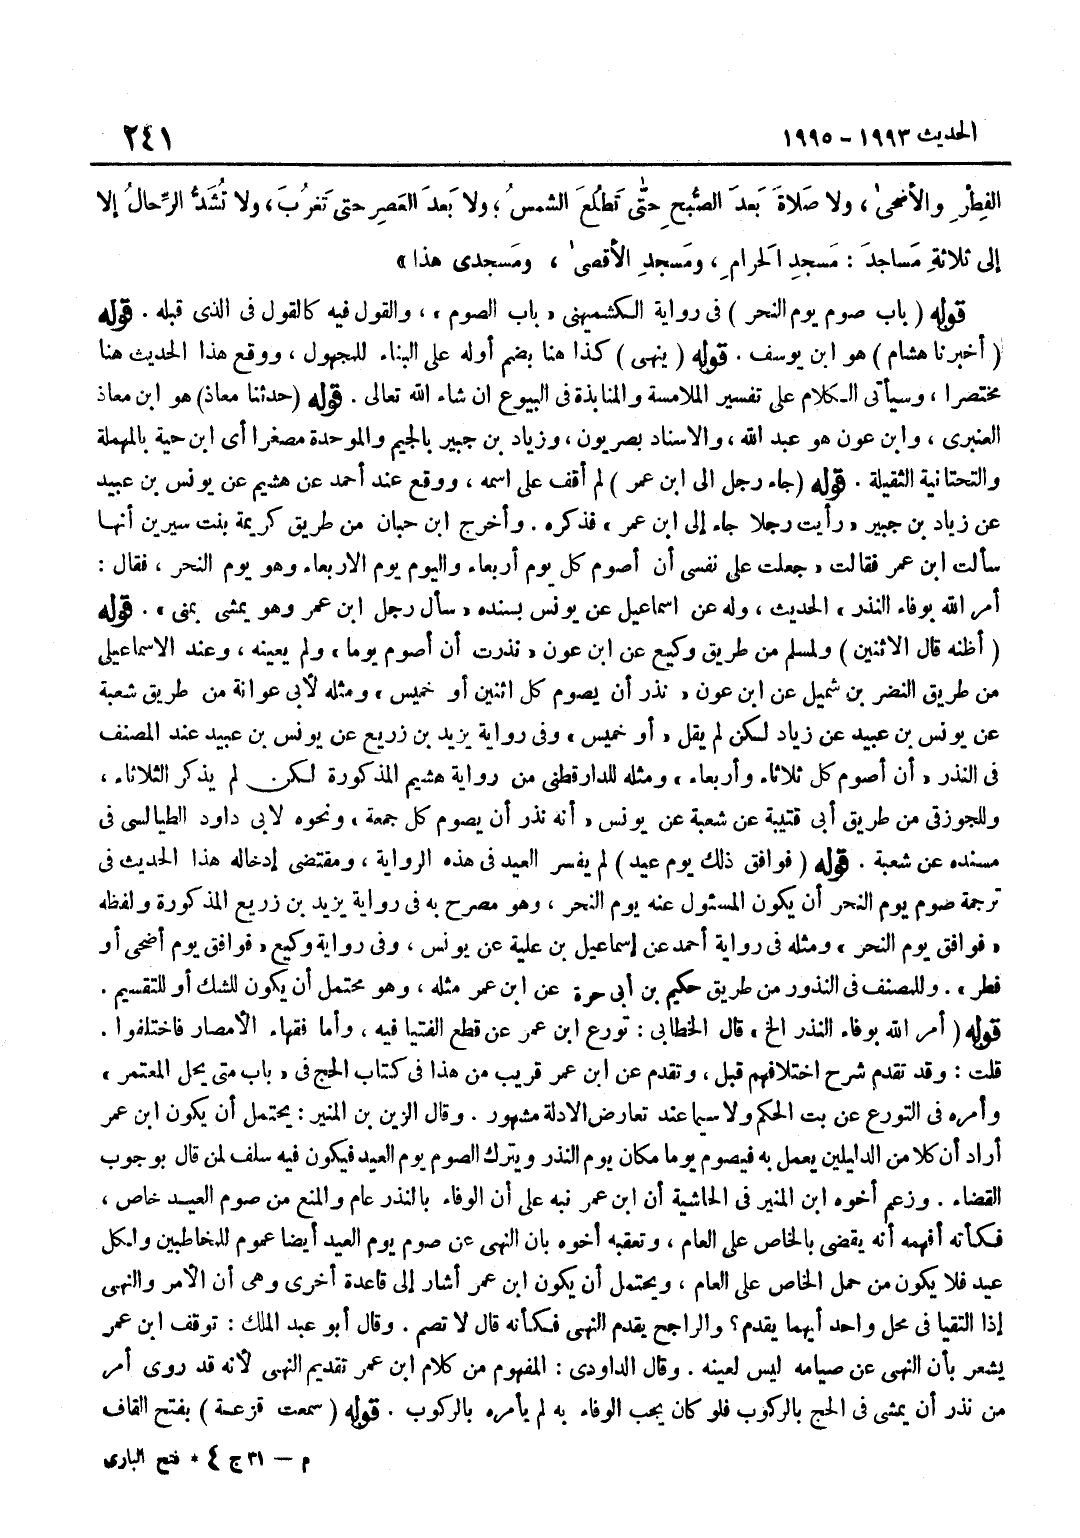 الحديث ١٩٩٣ - ١٩٩٥
٢٤١
الفِطْرِ والأضحىٰ، ولا صَلاةَ بَعدَ الصُّبحِ حتّٰى تَطلُعَ الشمسُ؛ ولا بَعدَ العَصرِ حتى تَغرُبَ، ولا تُشَدُّ الرِّحالُ إلا
إلى ثلاثةِ مَساجدَ : مَسجدِ الحرامِ، ومَسجدِ الأقصىٰ ، ومَسجدى هذا »
قوله ( باب صوم يوم النحر ) فى رواية الكشميهنى « باب الصوم » ، والقول فيه كالقول فى الذى قبله . قوله
( أخبرنا هشام ) هو ابن يوسف . قوله ( ينهى ) كذا هنا بضم أوله على البناء للمجهول ، ووقع هذا الحديث هنا
مختصرا ، وسيأتى الكلام على تفسير الملامسة والمنابذة فى البيوع ان شاء الله تعالى . قوله (حدثنا معاذ) هو ابن معاذ
العنبرى ، وابن عون هو عبد الله ، والاسناد بصريون ، وزياد بن جبير بالجيم والموحدة مصغرا أى ابن حية بالمهملة
والتحتانية الثقيلة . قوله (جاء رجل الى ابن عمر ) لم أقف على اسمه ، ووقع عند أحمد عن هشيم عن يونس بن عبيد
عن زياد بن جبير « رأيت رجلا جاء إلى ابن عمر » فذكره . وأخرج ابن حبان من طريق كريمة بنت سيرين أنها
سألت ابن عمر فقالت « جعلت على نفسى أن أصوم كل يوم أربعاء واليوم يوم الاربعاء وهو يوم النحر ، فقال :
أمر الله بوفاء النذر » الحديث ، وله عن اسماعيل عن يونس بسنده « سأل رجل ابن عمر وهو يمشى بمنى » . قوله
( أظنه قال الاثنين ) ولمسلم من طريق وكيع عن ابن عون « نذرت أن أصوم يوما » ولم يعينه ، وعند الاسماعيلى
من طريق النضر بن شميل عن ابن عون « نذر أن يصوم كل اثنين أو خميس » ومثله لأبى عوانة من طريق شعبة
عن يونس بن عبيد عن زياد لكن لم يقل « أو خميس » وفى رواية يزيد بن زريع عن يونس بن عبيد عند المصنف
فى النذر « أن أصوم كل ثلاثاء وأربعاء » ومثله للدارقطنى من رواية هشيم المذكورة لكن لم يذكر الثلاثاء ،
وللجوزقى من طريق أبى قتيبة عن شعبة عن يونس « أنه نذر أن يصوم كل جمعة » ونحوه لابى داود الطيالسى فى
مسنده عن شعبة . قوله ( فوافق ذلك يوم عيد ) لم يفسر العيد فى هذه الرواية ، ومقتضى إدخاله هذا الحديث فى
ترجمة صوم يوم النحر أن يكون المسئول عنه يوم النحر ، وهو مصرح به فى رواية يزيد بن زريع المذكورة ولفظه
« فوافق يوم النحر » ومثله فى رواية أحمد عن إسماعيل بن علية عن يونس ، وفى رواية وكيع « فوافق يوم أضحى أو
فطر » . وللمصنف فى النذور من طريق حكيم بن أبى حرة عن ابن عمر مثله ، وهو محتمل أن يكون للشك أو للتقسيم .
قوله ( أمر الله بوفاء النذر الخ » قال الخطابى : تورع ابن عمر عن قطع الفتيا فيه ، وأما فقهاء الأمصار فاختلفوا .
قلت : وقد تقدم شرح اختلافهم قبل ، وتقدم عن ابن عمر قريب من هذا فى كتاب الحج فى « باب متى يحل المعتمر »
وأمره فى التورع عن بت الحكم ولا سيما عند تعارض الادلة مشهور . وقال الزين بن المنير : يحتمل أن يكون ابن عمر
أراد أن كلا من الدليلين يعمل به فيصوم يوما مكان يوم النذر ويترك الصوم يوم العيد فيكون فيه سلف لمن قال بوجوب
القضاء . وزعم أخوه ابن المنير فى الحاشية أن ابن عمر نبه على أن الوفاء بالنذر عام والمنع من صوم العيد خاص ،
فكأنه أفهمه أنه يقضى بالخاص على العام ، وتعقبه أخوه بان النهى عن صوم يوم العيد أيضا عموم للمخاطبين ولكل
عيد فلا يكون من حمل الخاص على العام ، ويحتمل أن يكون ابن عمر أشار إلى قاعدة أخرى وهى أن الأمر والنهى
إذا التقيا فى محل واحد أيهما يقدم؟ والراجح يقدم النهى فكأنه قال لا تصم . وقال أبو عبد الملك : توقف ابن عمر
يشعر بأن النهى عن صيامه ليس لعينه . وقال الداودى : المفهوم من كلام ابن عمر تقديم النهى لأنه قد روى أمر
من نذر أن يمشى فى الحج بالركوب فلو كان يجب الوفاء به لم يأمره بالركوب . قوله ( سمعت قزعة ) بفتح القاف
م — ٣١ ج ٤ * فتح البارى